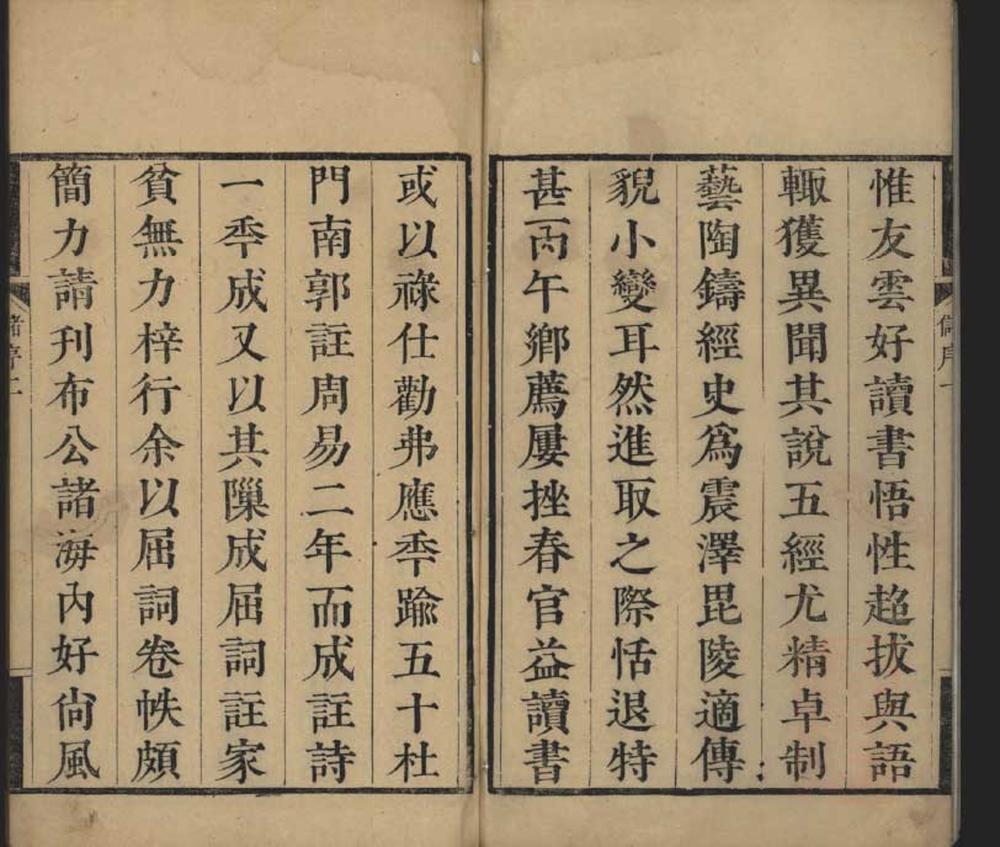 惟友雲好讀書悟性超拔與語
輙獲異聞其說五經尤精卓制
藝陶鑄經史爲震澤毘陵適傳
貌小變耳然進取之際恬退特
甚丙午鄉薦屢挫春官益讀書
或以祿仕勸弗應秊踰五十杜
門南郭註周易二年而成註詩
一秊成又以其隟成屈詞註家
貧無力梓行余以屈詞卷帙頗
簡力請刊布公諸海內好尙風
序二